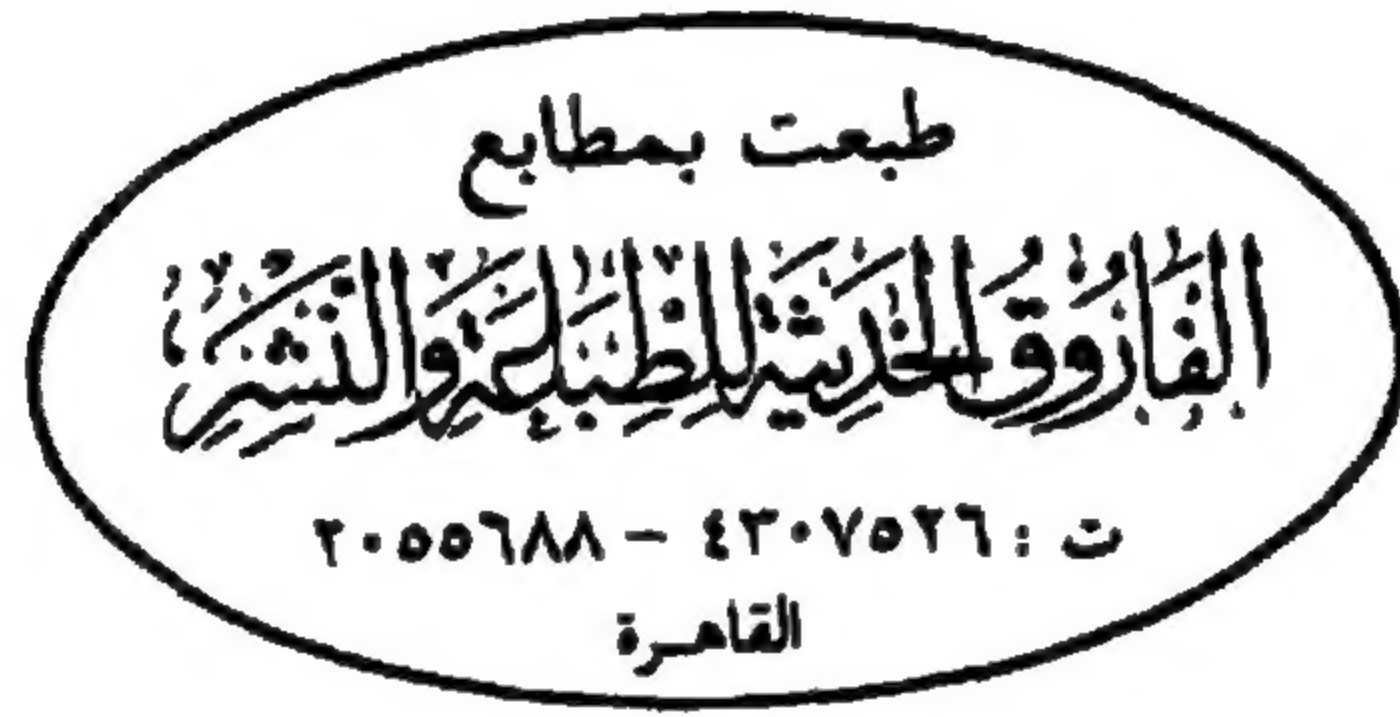 طبعت بمطابع
الفَارُوقُ الحَدِيثَة لِلطِّبَاعَةِ وَالنَّشْرِ
ت : ٤٣٠٧٥٢٦ – ٢٠٥٥٦٨٨
القاهـرة